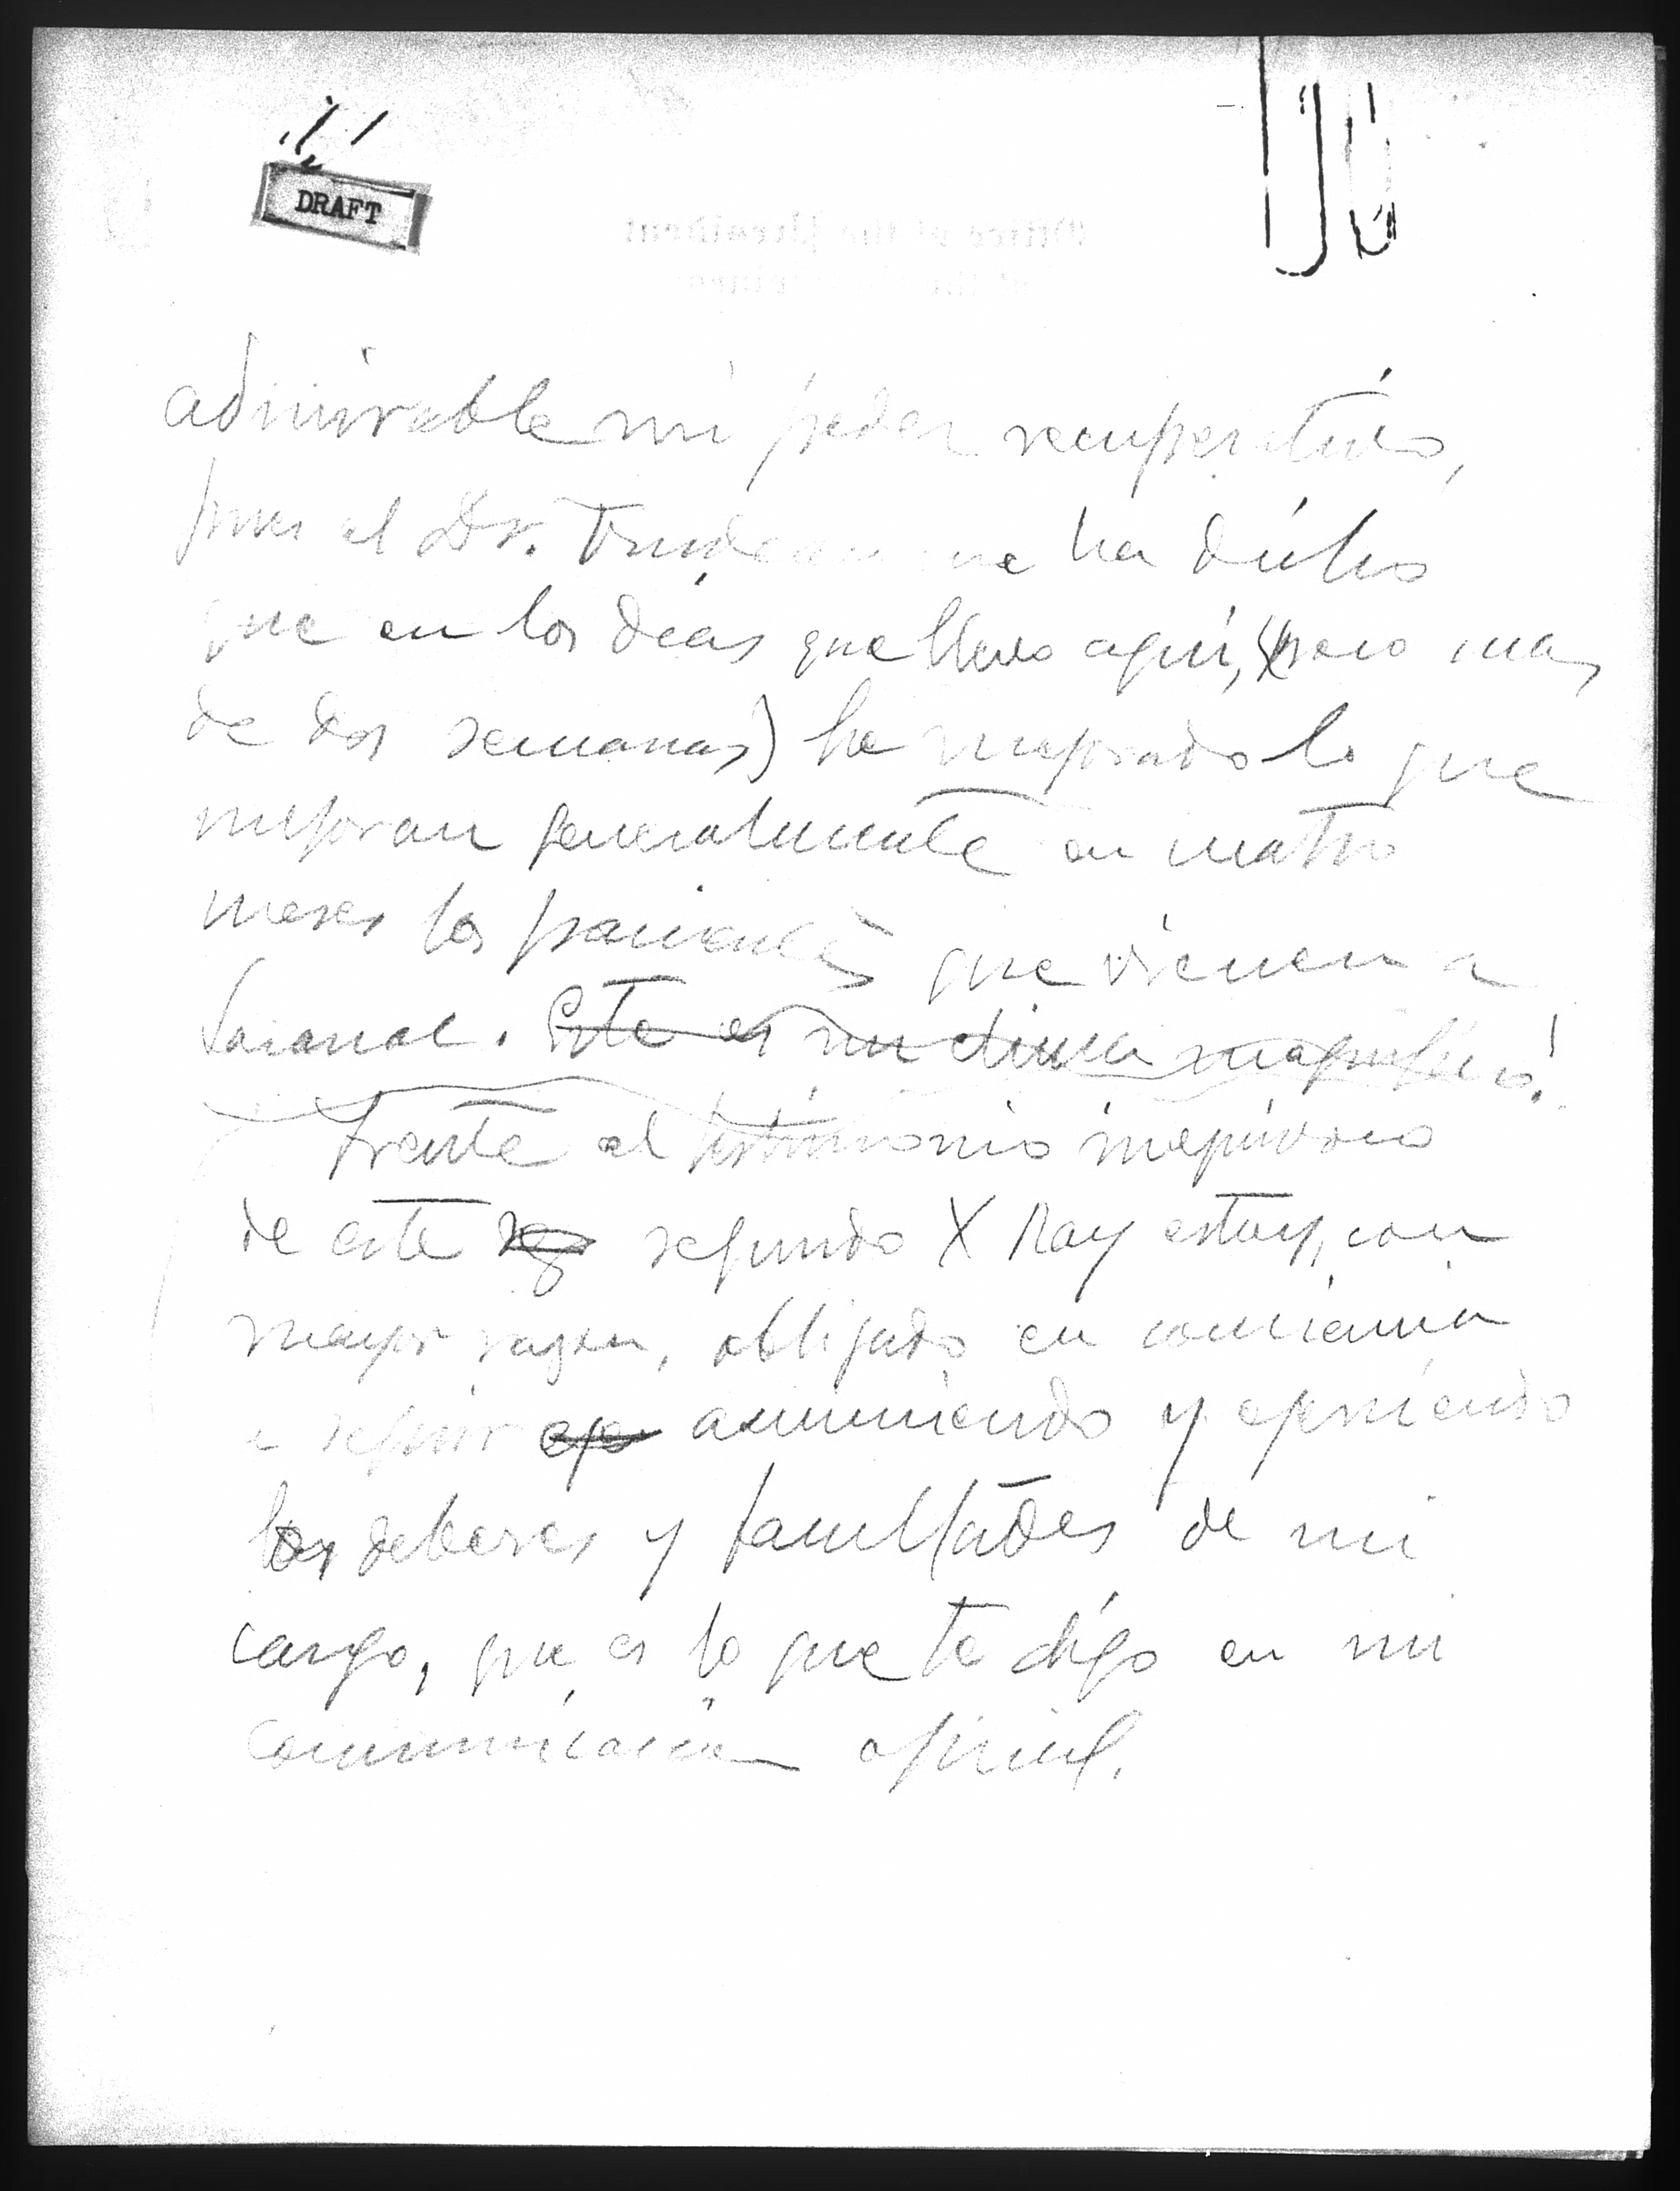 DRAFT
admirable mi poder recuperativo,
pues el Dr. Trudeau me ha dicho
que en los dias que llevo aquí, (poco mas
de dos semanas) he mejorado lo que
mejoran generalmente en cuatro
meses los pacientes que vienen a
Saranac. Este es un clima magnifico!
Frente al testimonio inequívoco
de este segundo X Ray estoy, con
mayor razon, obligado en conciencia
a seguir eje asumiendo y ejerciendo
los deberes y facultades de mi
cargo, que es lo que te digo en mi
comunicación oficial.